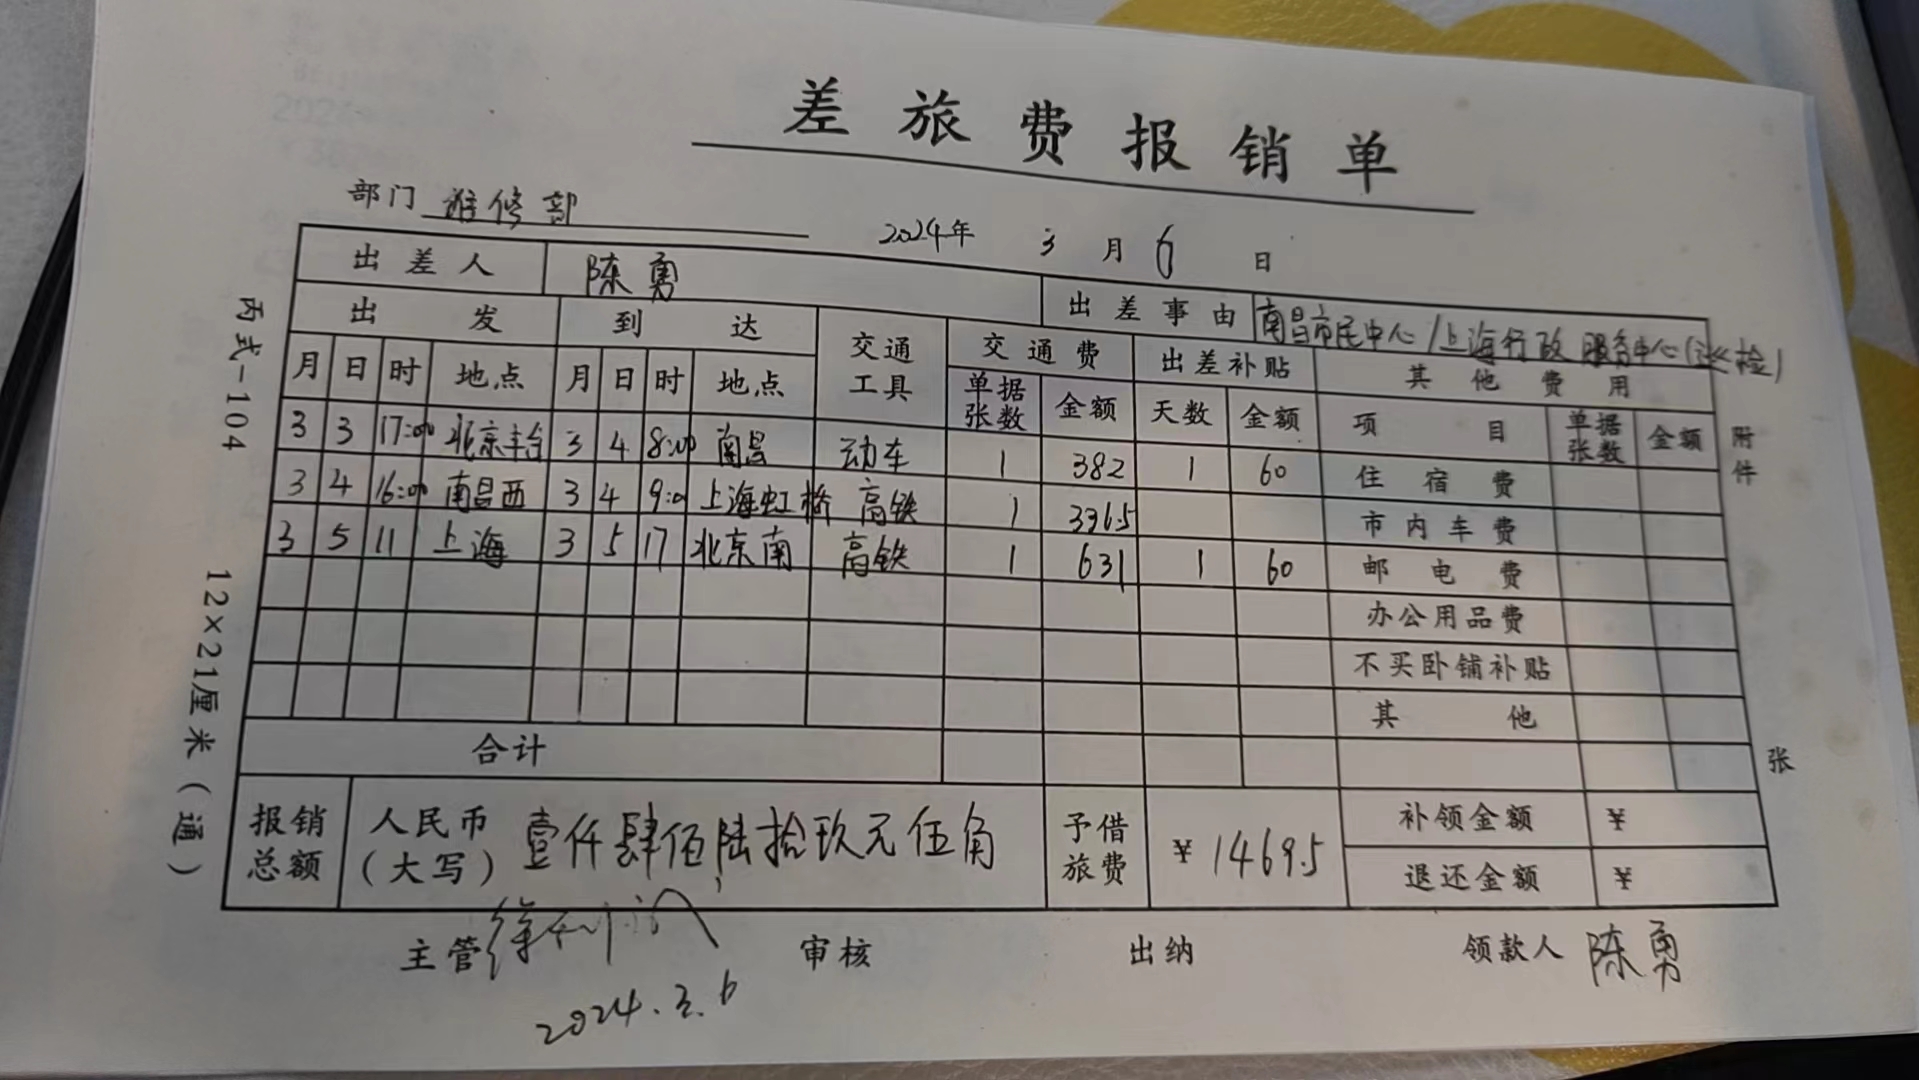 差旅费报销单
部门 维修部 2024年 3月6日
出差人 陈勇 出差事由 南昌市民中心/上海行政服务中心(巡检)
出发 到达 交通工具 交通费 出差补贴 其他费用
月 日 时 地点 月 日 时 地点 单据张数 金额 天数 金额 项目 单据张数 金额
3 3 17:00 北京丰台 3 4 8:00 南昌 动车 1 382 1 60 住宿费
3 4 16:00 南昌西 3 4 9:0 上海虹桥 高铁 1 336.5 市内车费
3 5 11 上海 3 5 17 北京南 高铁 1 631 1 60 邮电费
办公用品费
不买卧铺补贴
其他
合计
报销总额 人民币(大写) 壹仟肆佰陆拾玖元伍角 予借旅费 ¥1469.5 补领金额 ¥
退还金额 ¥
主管 审核 出纳 领款人 陈勇
2024.3.6
丙式-104 12×21厘米(通)
附件 张